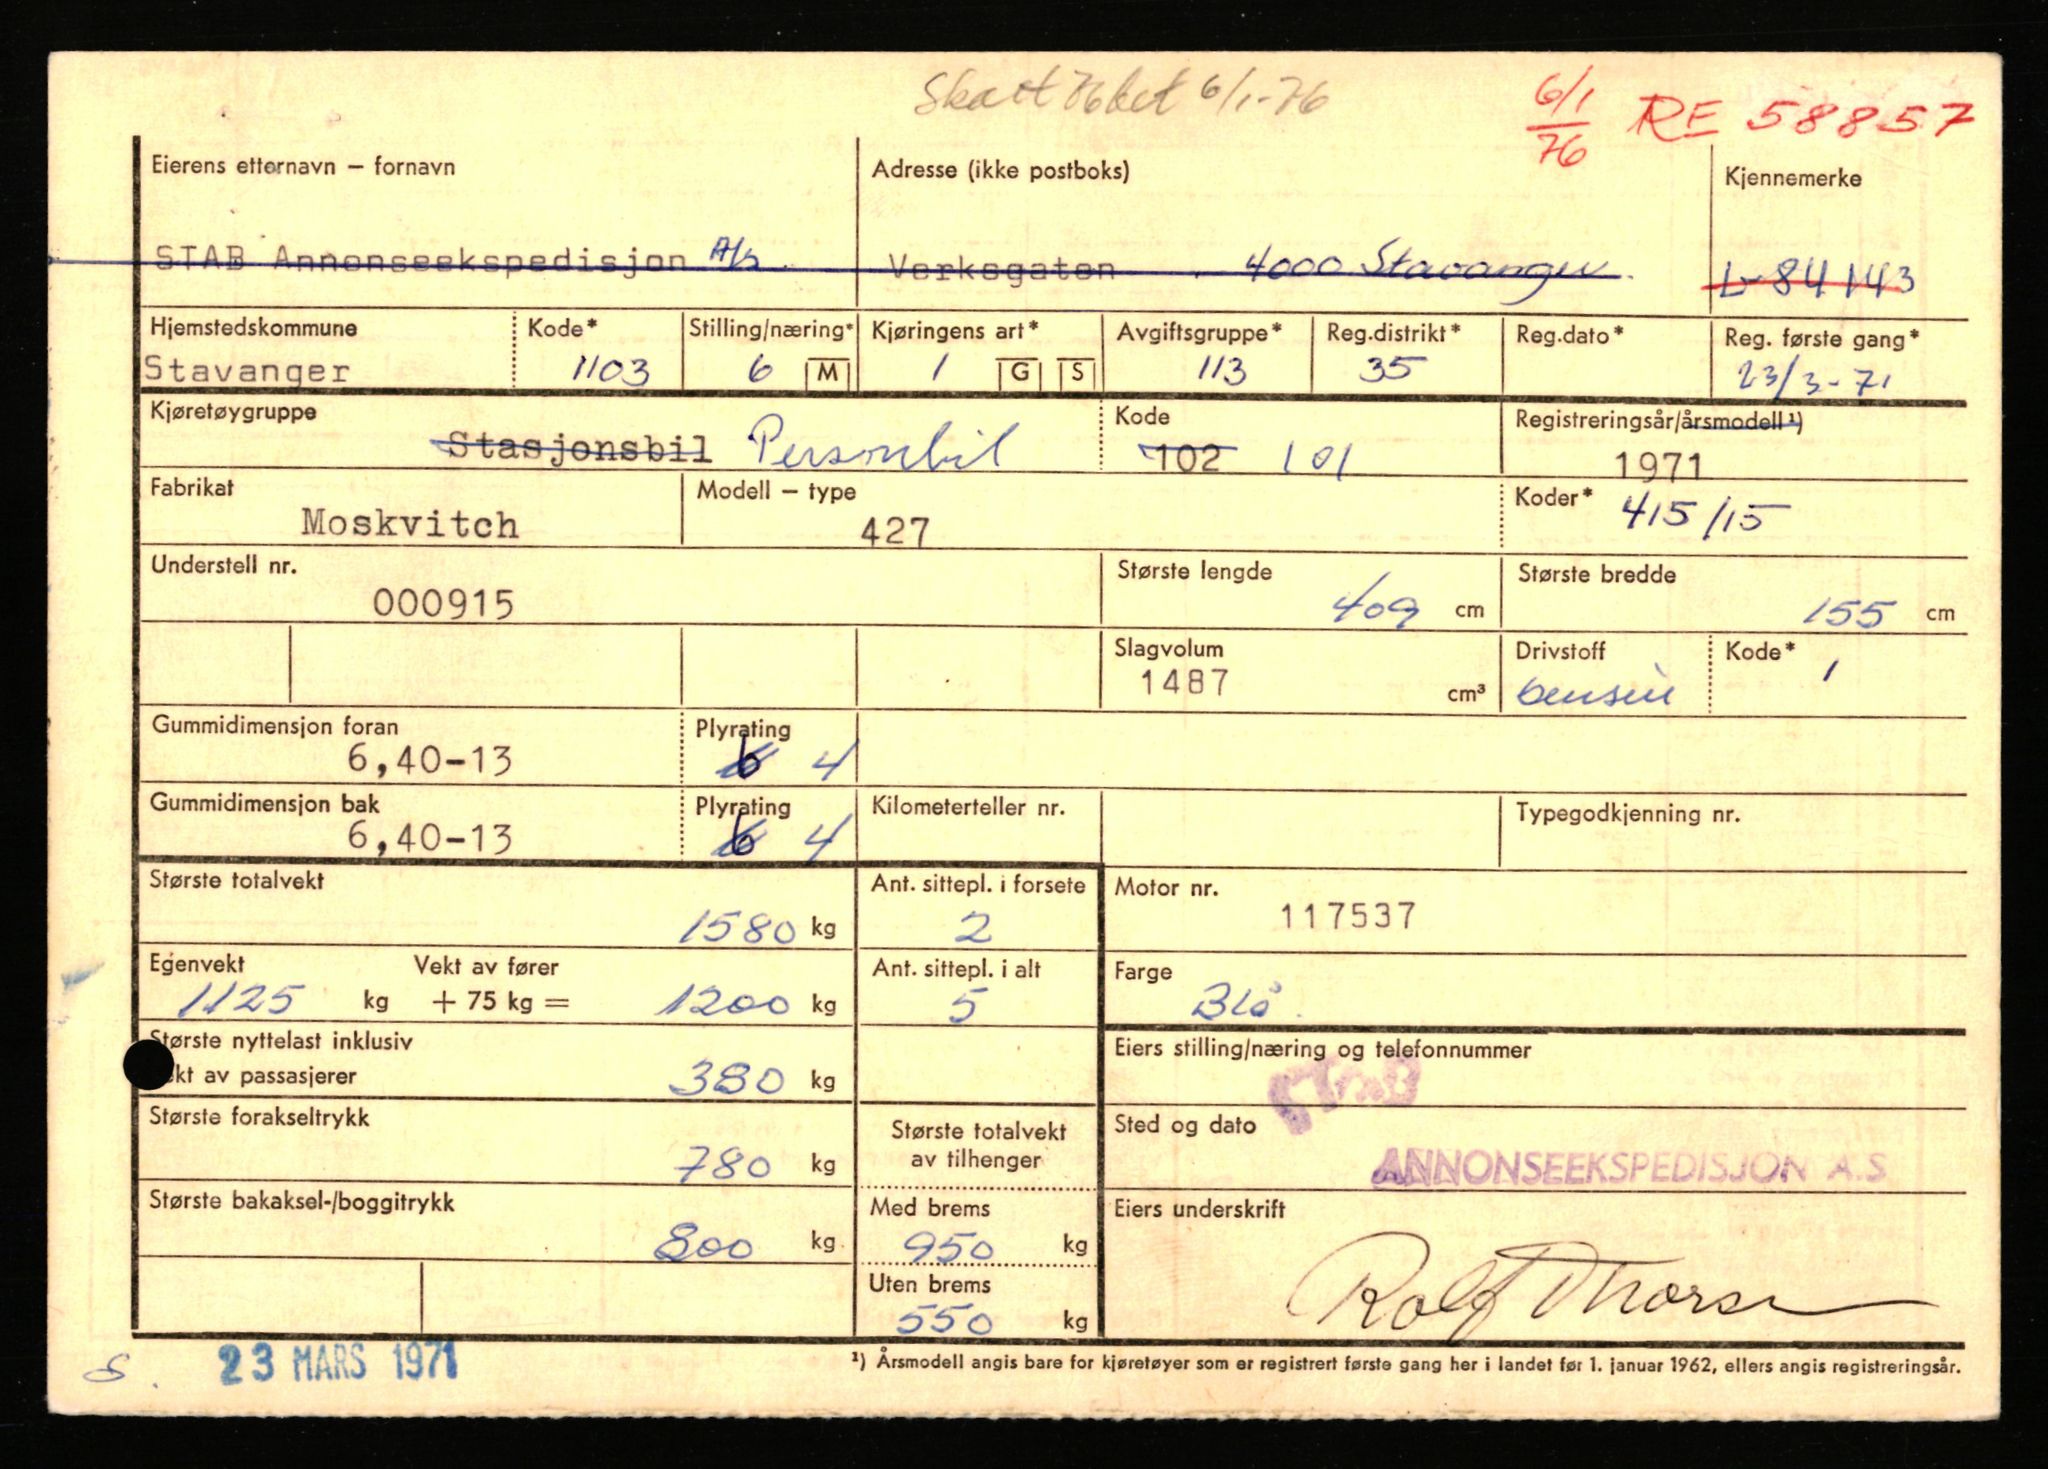 Skatt 76 bet 6/1-76
6/1 76 RE 58857
Eierens etternavn – fornavn Adresse (ikke postboks) Kjennemerke
STAB Annonseekspedisjon A/s Verksgaten 4000 Stavanger L-84143
Hjemstedskommune Kode* Stilling/næring* Kjøringens art* Avgiftsgruppe* Reg.distrikt* Reg.dato* Reg. første gang*
Stavanger 1103 6 M 1 G S 113 35 23/3-71
Kjøretøygruppe Kode Registreringsår/årsmodell¹)
Stasjonsbil Personbil 102 101 1971
Fabrikat Modell – type Koder*
Moskvitch 427 415/15
Understell nr. Største lengde Største bredde
000915 409 cm 155 cm
Slagvolum Drivstoff Kode*
1487 cm³ bensin 1
Gummidimensjon foran Plyrating
6,40-13 6 4
Gummidimensjon bak Plyrating Kilometerteller nr. Typegodkjenning nr.
6,40-13 6 4
Største totalvekt Ant. sittepl. i forsete Motor nr.
1580 kg 2 117537
Egenvekt Vekt av fører Ant. sittepl. i alt Farge
1125 kg + 75 kg = 1200 kg 5 Blå.
Største nyttelast inklusiv Eiers stilling/næring og telefonnummer
vekt av passasjerer 380 kg STAB
Største forakseltrykk Største totalvekt Sted og dato
780 kg av tilhenger ANNONSEEKSPEDISJON A.S
Største bakaksel-/boggitrykk Med brems Eiers underskrift
800 kg. 950 kg
Uten brems Rolf
550 kg
23 MARS 1971
¹) Årsmodell angis bare for kjøretøyer som er registrert første gang her i landet før 1. januar 1962, ellers angis registreringsår.